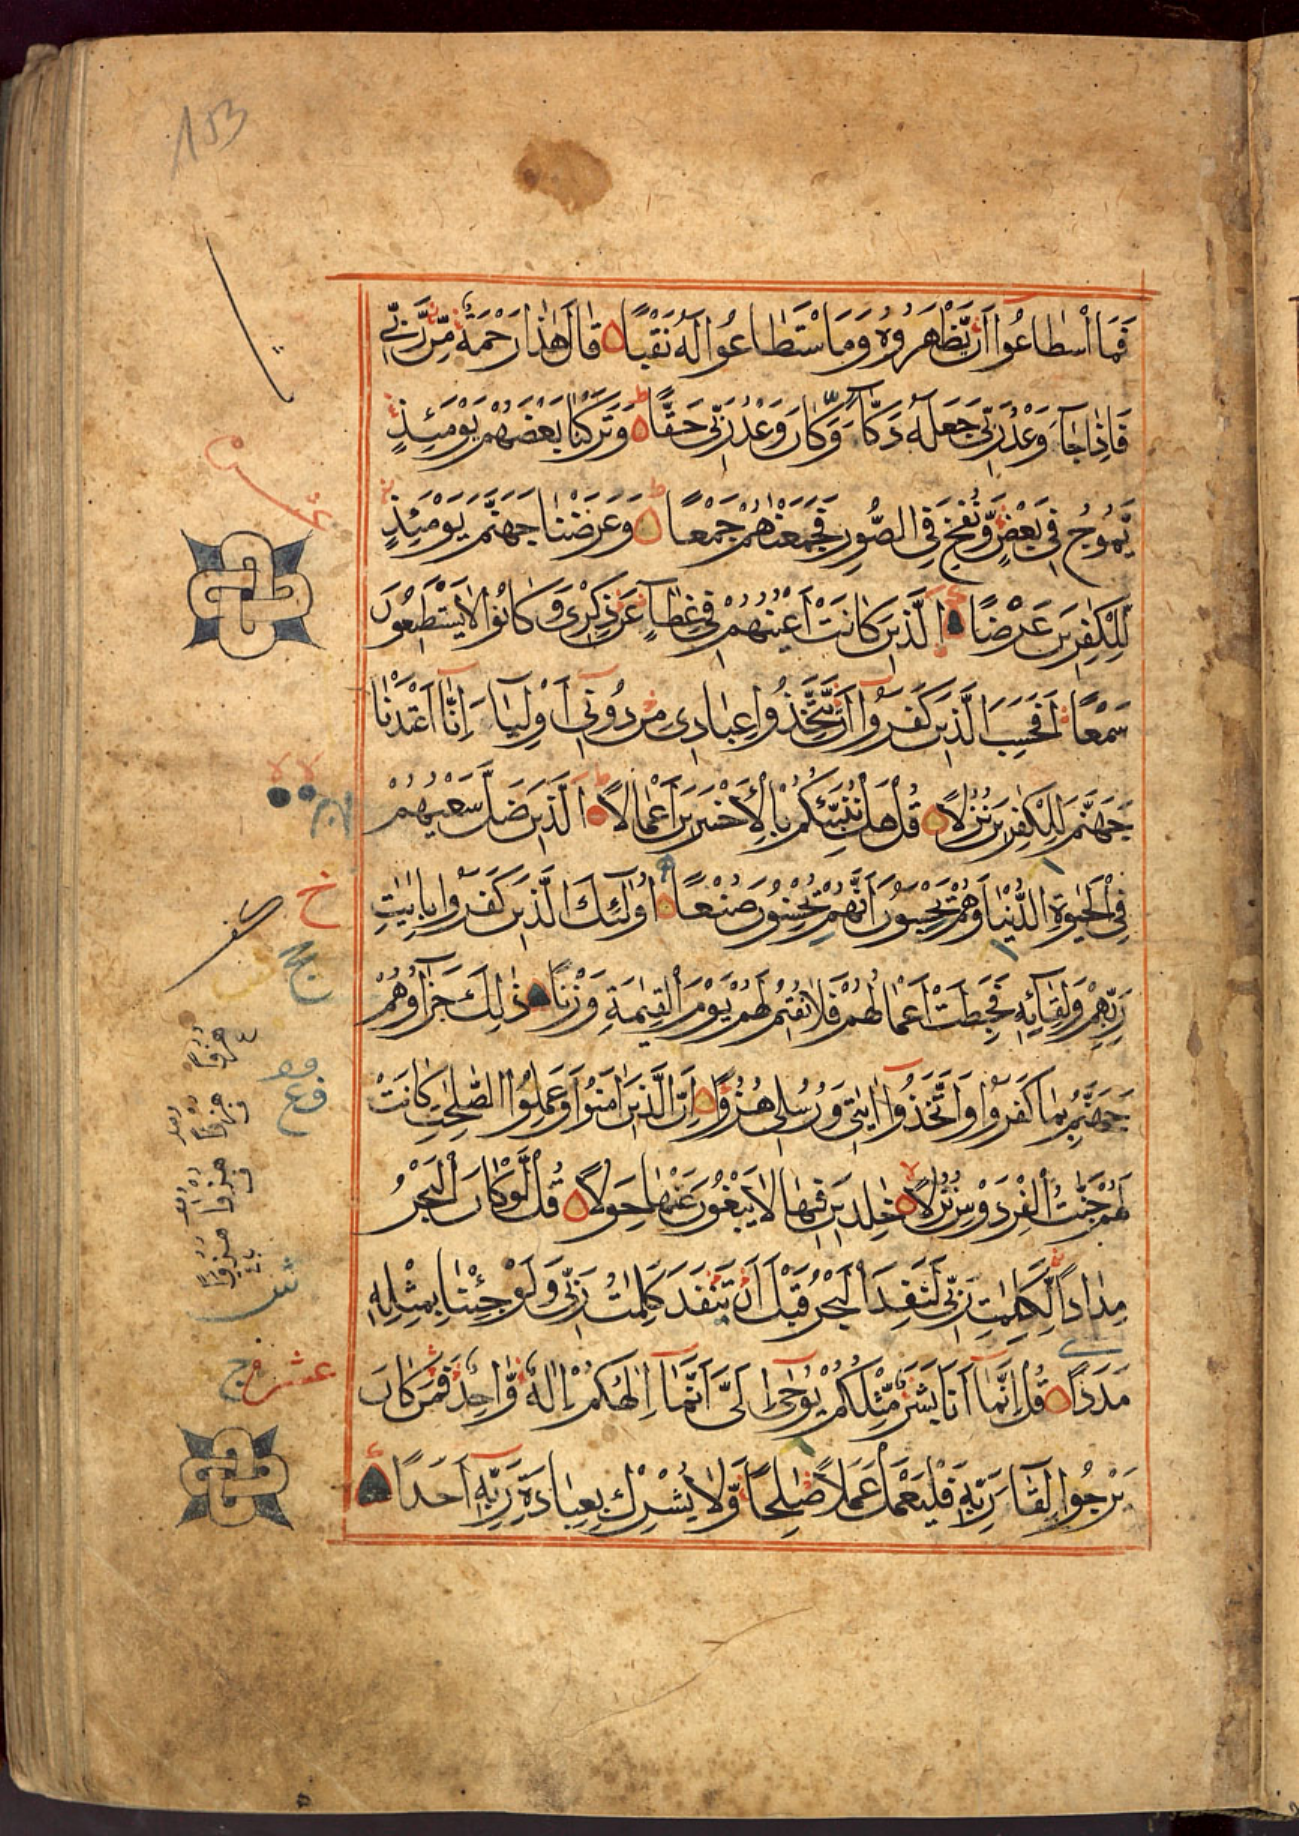 153
فَمَا اسْطَاعُوا أَنْ يَّظْهَرُوهُ وَمَا اسْتَطَاعُوا لَهُ نَقْبًا قَالَ هٰذَا رَحْمَةٌ مِّنْ رَّبِّي
فَإِذَا جَآءَ وَعْدُ رَبِّي جَعَلَهُ دَكَّآءَ وَكَانَ وَعْدُ رَبِّي حَقًّا وَتَرَكْنَا بَعْضَهُمْ يَوْمَئِذٍ
يَّمُوجُ فِي بَعْضٍ وَّنُفِخَ فِي الصُّورِ فَجَمَعْنٰهُمْ جَمْعًا وَعَرَضْنَا جَهَنَّمَ يَوْمَئِذٍ
لِّلْكٰفِرِينَ عَرْضًا الَّذِينَ كَانَتْ أَعْيُنُهُمْ فِي غِطَآءٍ عَنْ ذِكْرِي وَكَانُوا لَا يَسْتَطِيعُونَ
سَمْعًا أَفَحَسِبَ الَّذِينَ كَفَرُوا أَنْ يَّتَّخِذُوا عِبَادِي مِنْ دُونِي أَوْلِيَآءَ إِنَّا أَعْتَدْنَا
جَهَنَّمَ لِلْكٰفِرِينَ نُزُلًا قُلْ هَلْ نُنَبِّئُكُمْ بِالْأَخْسَرِينَ أَعْمَالًا الَّذِينَ ضَلَّ سَعْيُهُمْ
فِي الْحَيٰوةِ الدُّنْيَا وَهُمْ يَحْسَبُونَ أَنَّهُمْ يُحْسِنُونَ صُنْعًا أُولٰٓئِكَ الَّذِينَ كَفَرُوا بِاٰيٰتِ
رَبِّهِمْ وَلِقَآئِهِ فَحَبِطَتْ أَعْمَالُهُمْ فَلَا نُقِيمُ لَهُمْ يَوْمَ الْقِيٰمَةِ وَزْنًا ذٰلِكَ جَزَآؤُهُمْ
جَهَنَّمُ بِمَا كَفَرُوا وَاتَّخَذُوا اٰيٰتِي وَرُسُلِي هُزُوًا إِنَّ الَّذِينَ اٰمَنُوا وَعَمِلُوا الصّٰلِحٰتِ كَانَتْ
لَهُمْ جَنّٰتُ الْفِرْدَوْسِ نُزُلًا خٰلِدِينَ فِيهَا لَا يَبْغُونَ عَنْهَا حِوَلًا قُلْ لَّوْ كَانَ الْبَحْرُ
مِدَادًا لِّكَلِمٰتِ رَبِّي لَنَفِدَ الْبَحْرُ قَبْلَ أَنْ تَنْفَدَ كَلِمٰتُ رَبِّي وَلَوْ جِئْنَا بِمِثْلِهِ
مَدَدًا قُلْ إِنَّمَا أَنَا بَشَرٌ مِّثْلُكُمْ يُوحٰى إِلَيَّ أَنَّمَا إِلٰهُكُمْ إِلٰهٌ وَّاحِدٌ فَمَنْ كَانَ
يَرْجُوا لِقَآءَ رَبِّهِ فَلْيَعْمَلْ عَمَلًا صَالِحًا وَّلَا يُشْرِكْ بِعِبَادَةِ رَبِّهِ أَحَدًا
عشر